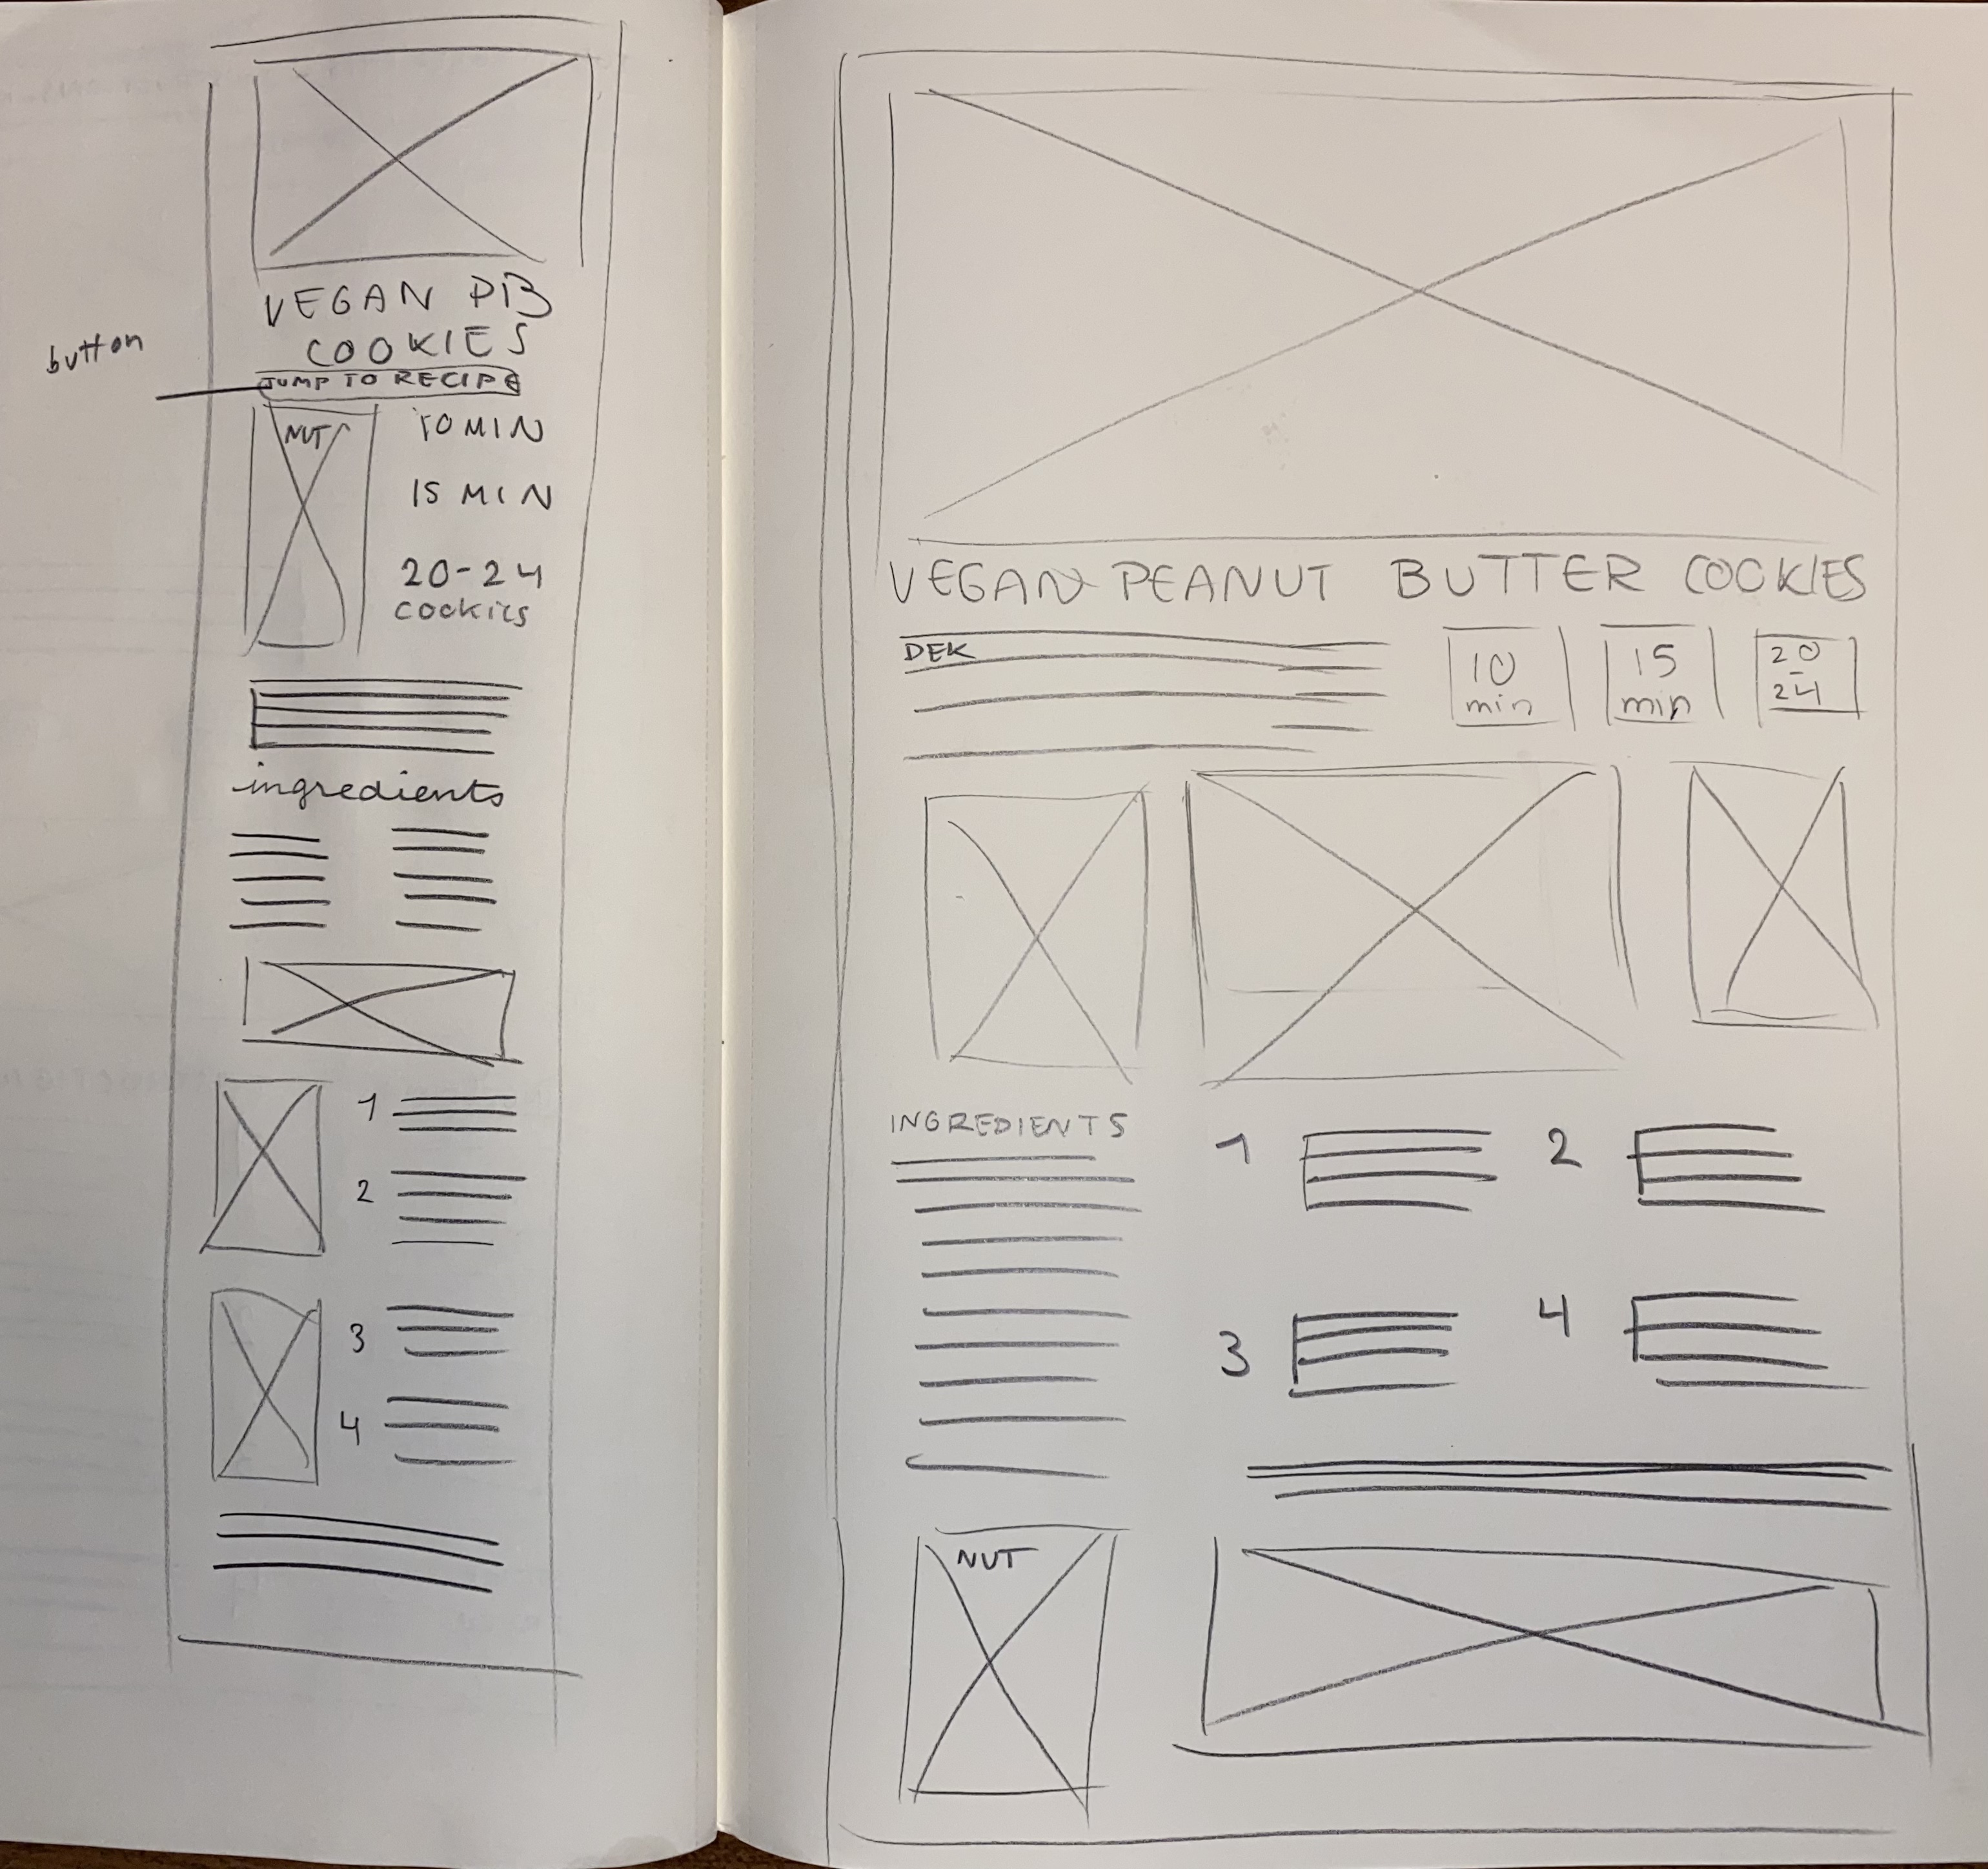 button
VEGAN PB
COOKIES
JUMP TO RECIPE
NUT
10 MIN
15 MIN
20-24
cookies
ingredients
1
2
3
4
VEGAN PEANUT BUTTER COOKIES
DEK
10
min
15
min
20
-
24
INGREDIENTS
1
2
3
4
NUT